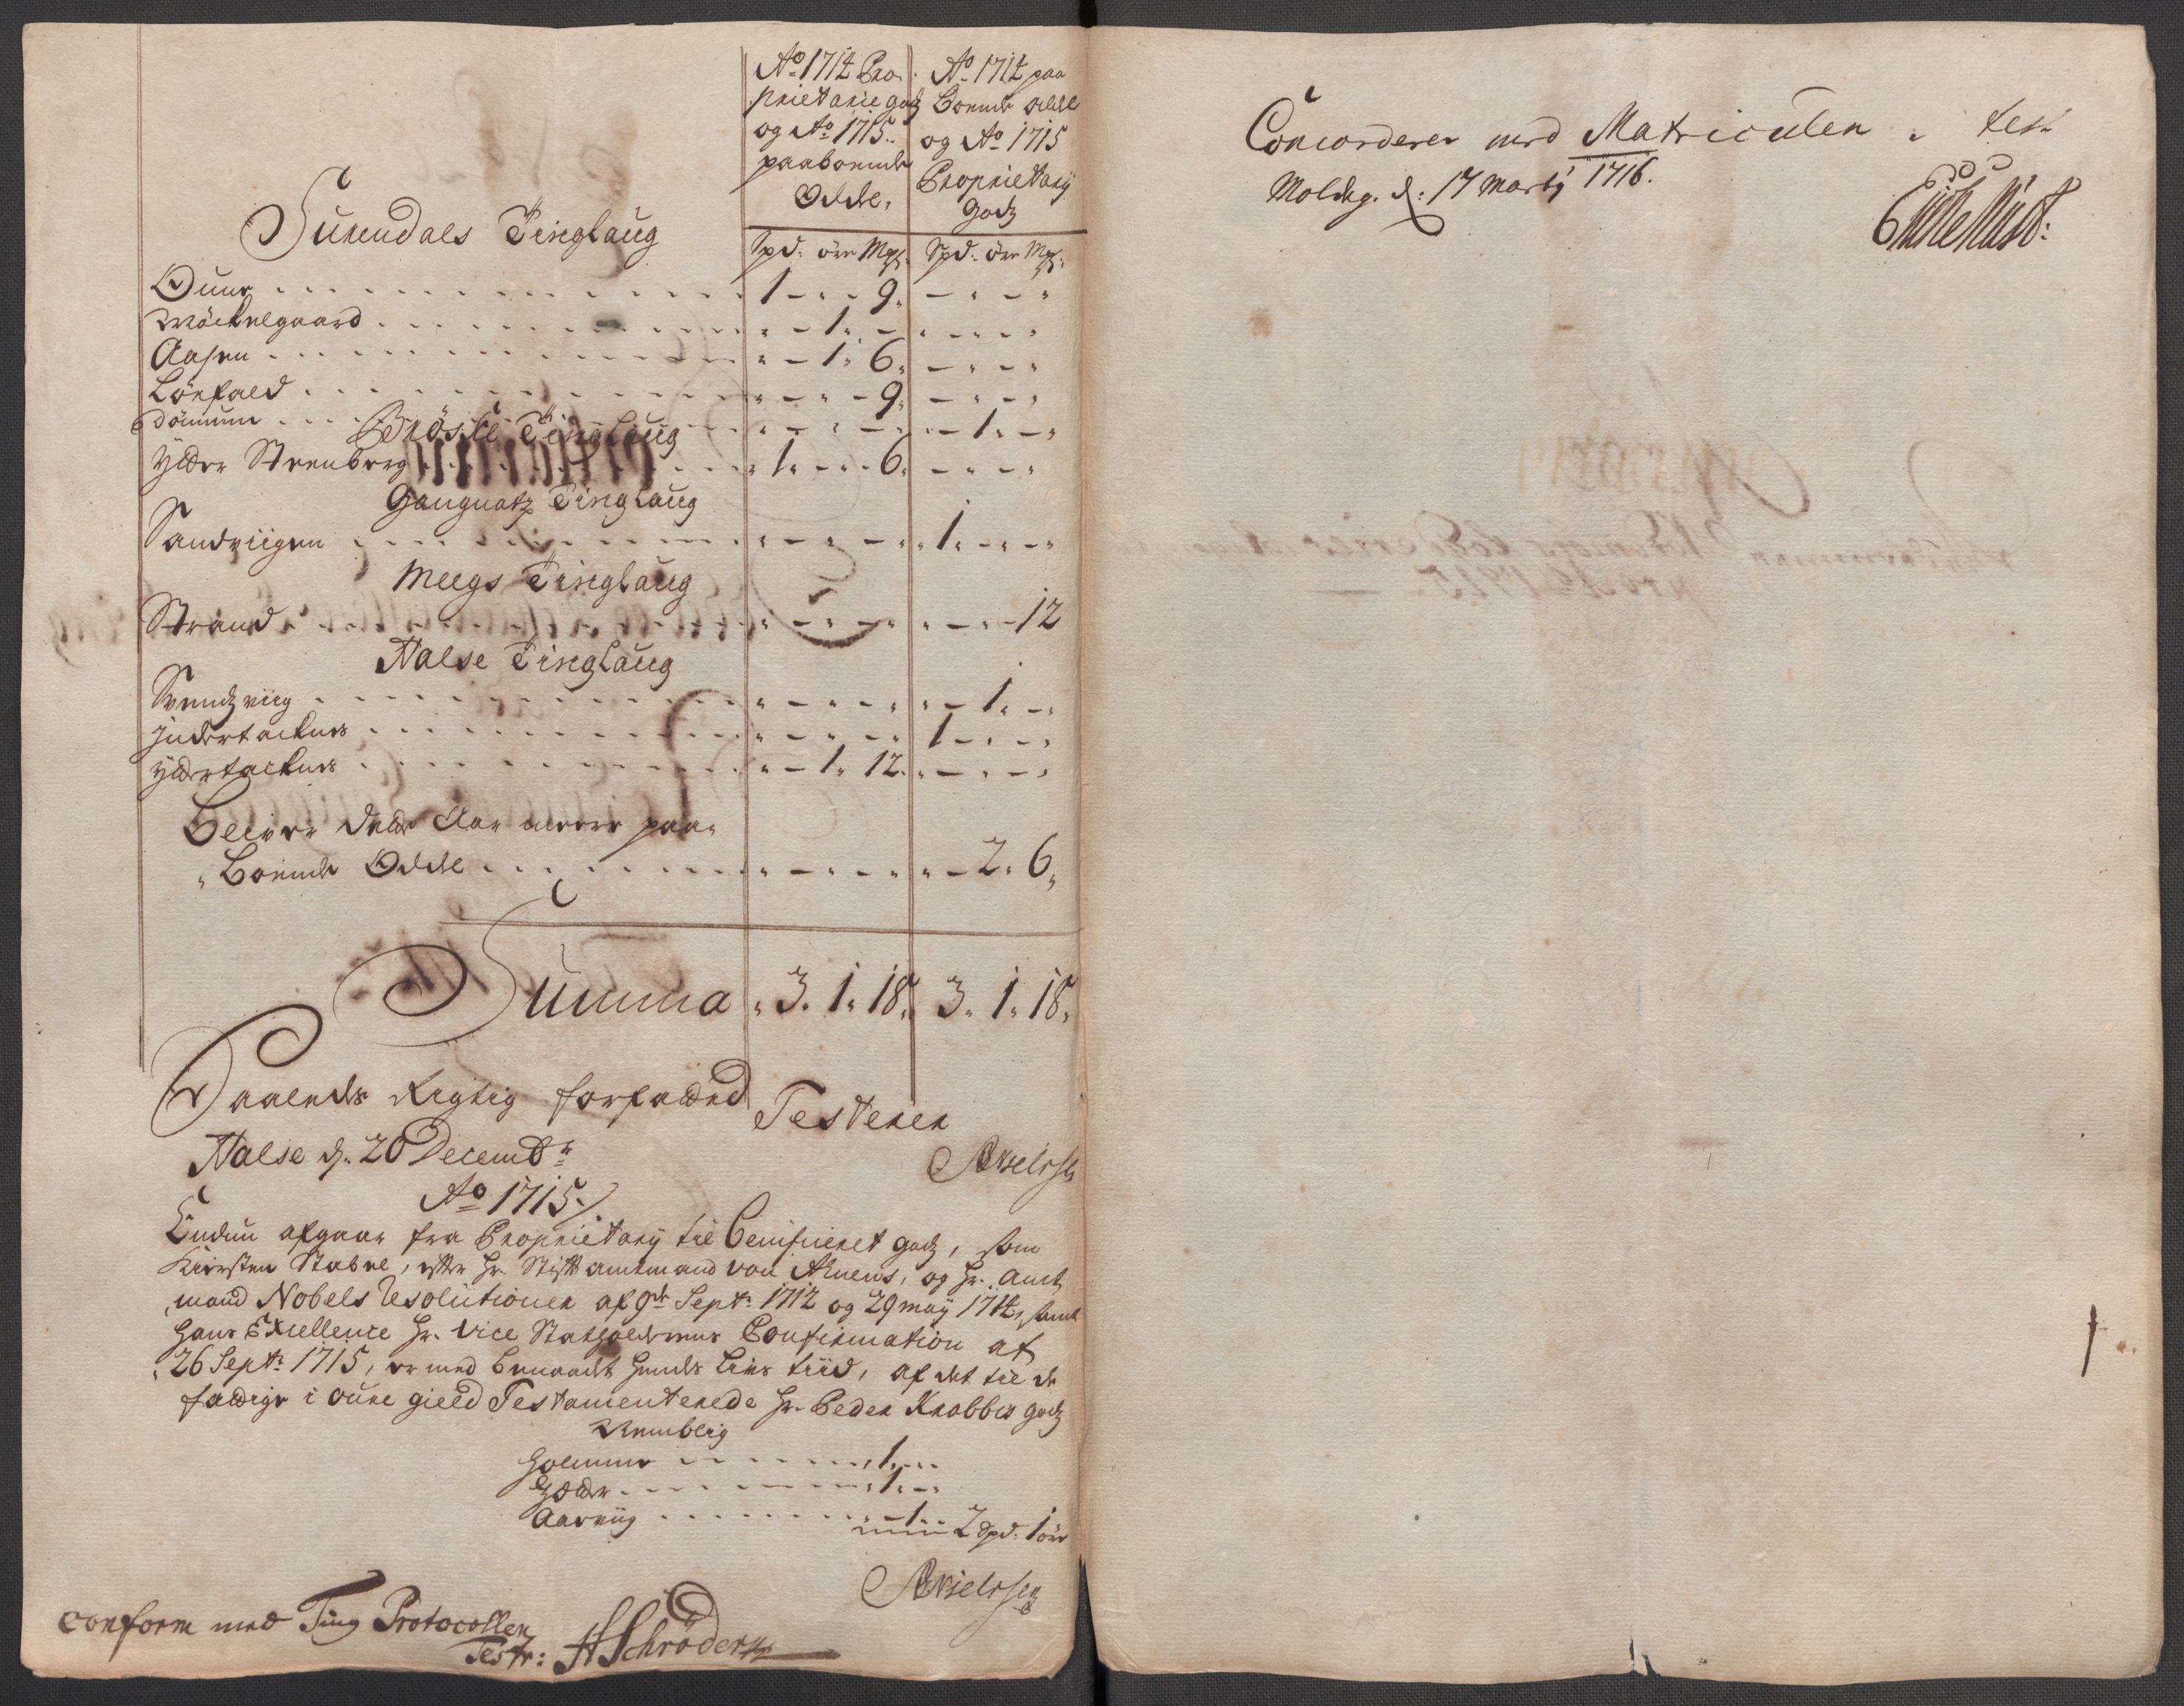 Ao 1714 Pro-
prietarie godz
og Ao 1715
paaboende
Odell,
Ao 1714 paa
Boende odell
og Ao 1715
Proprietary
Godz
Surendals Tinglaug
Spd: öre Mk: Spd: öre Mk:
Ouur 1 - - 9
Möckelgaard - 1 -
Aasen - 1 6
Lönfald - - 9
Dönnum - 1 -
Bröske Tinglaug
Ytter Steenberg 1 - - 6
Gangnatz Tinglaug
Sandviigen 1 - -
Meegs Tinglaug
Strand - - 12
Halse Tinglaug
Svendzviig - 1 -
Indertacknes 1 - -
Ydertacknes - 1. 12.
Bliver dette Aar meere paa-
Boende Odell - 2. 6.
Summa 3. 1. 18. 3. 1. 18.
Saaledes Rigtig forfatted Testerer
Halse d: 20 Decembr
Ao 1715
Endnu afgaar fra Proprietary til Benificeret godz, som
Kirsten Stabel, efter Hr. Stiftamtmand von Ahnens, og Hr. Amt
mand Nobels Resolutioner af 9de Septr: 1712 og 29 may 1714, samt
Hans Excellence Hr. Vice Statholderens Confirmation af
26 Septr: 1715, er med benaadt hendes Livs tiid, af det til de
fattige i Oure gield Testamenterede Hr. Peder Krabbes godz
Nemblig
Holmme 1 -
Holder 1 -
Aarviig - 1
2 Spd: 1 öre
Axelssen
conform med Ting Protocollen
Test: HSchröder
Concorderer med Matriculen test
Moldeg. d: 17 Marty 1716.